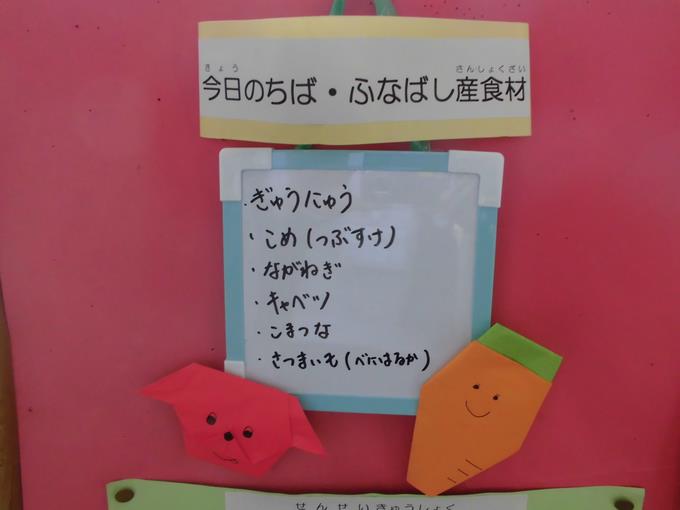 きょう さんしょくざい
今日のちば・ふなばし産食材
・ぎゅうにゅう
・こめ(つぶすけ)
・ながねぎ
・キャベツ
・こまつな
・さつまいも(べにはるか)
せんせいきゅうしょく